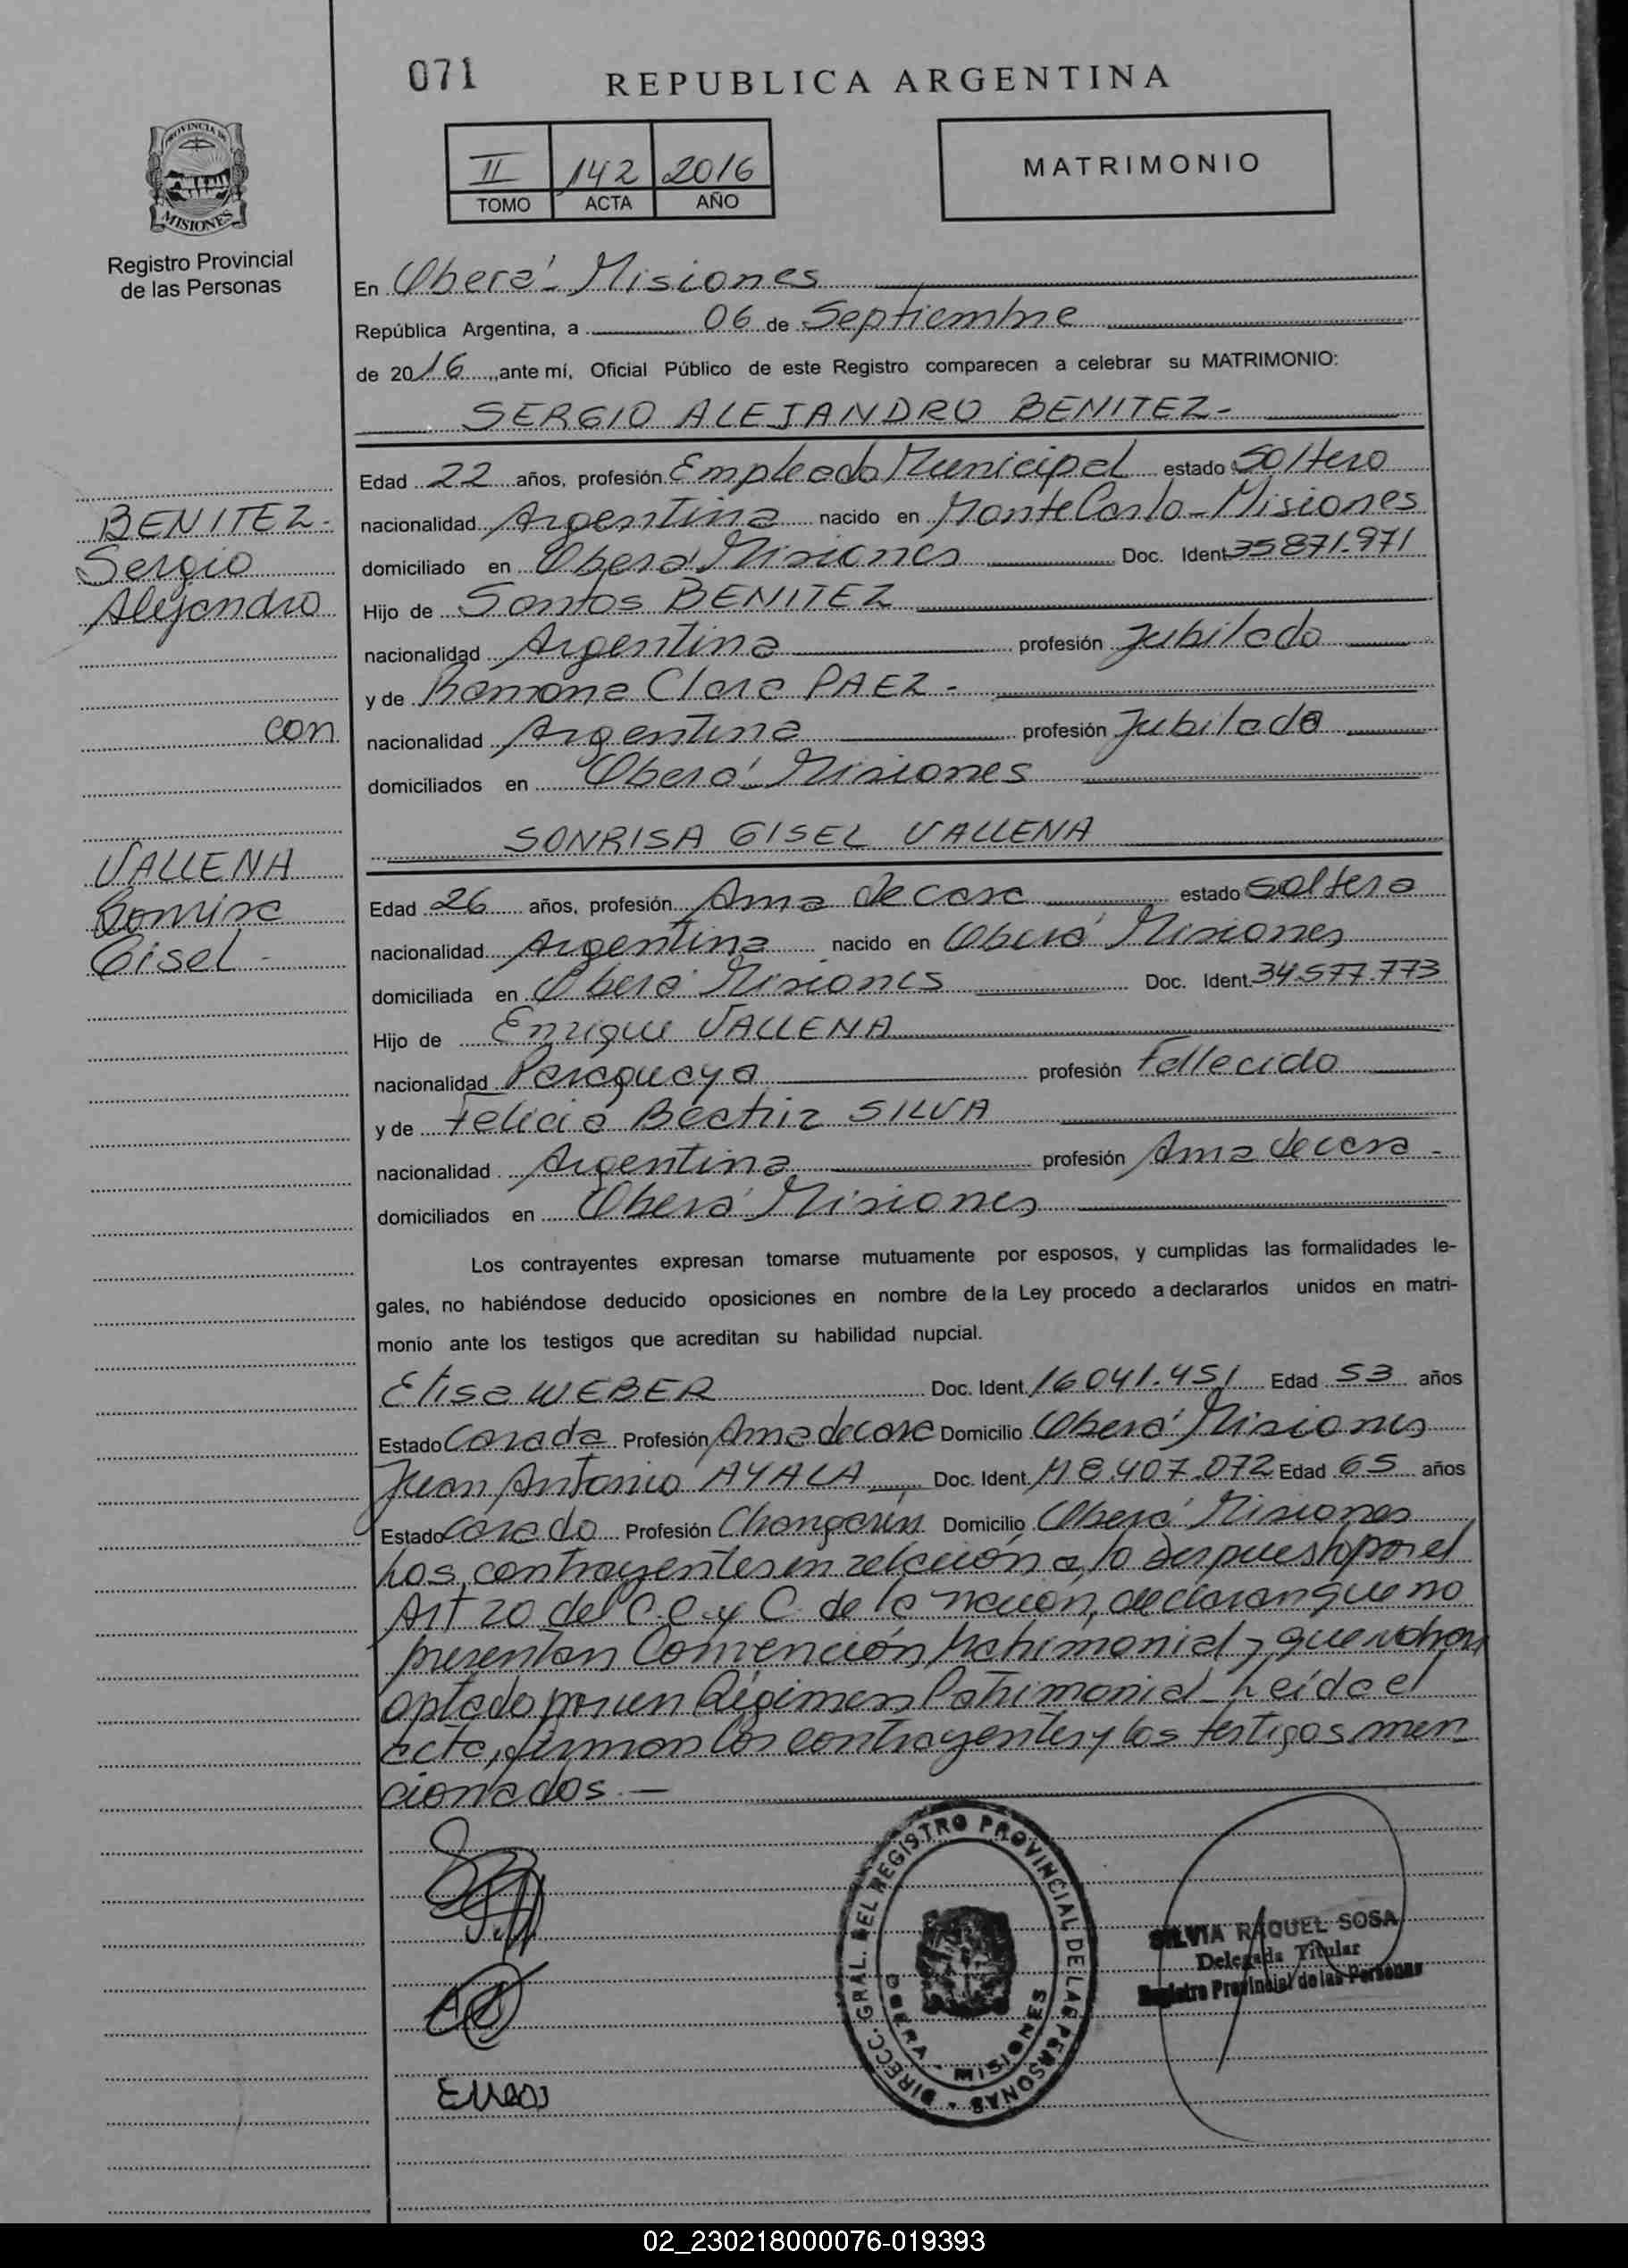 071
REPUBLICA ARGENTINA
PROVINCIA DE
MISIONES
II 142 2016
TOMO ACTA AÑO
MATRIMONIO
Registro Provincial
de las Personas
En Oberá - Misiones
República Argentina, a 06 de Septiembre
de 2016, ante mí, Oficial Público de este Registro comparecen a celebrar su MATRIMONIO:
SERGIO ALEJANDRO BENITEZ-
Edad 22 años, profesión Empleado Municipal estado Soltero
BENITEZ-
nacionalidad Argentina nacido en Monte Carlo - Misiones
Sergio
domiciliado en Oberá Misiones Doc. Ident. 35871.971
Alejandro
Hijo de Santos BENITEZ
nacionalidad Argentina profesión Jubilado
y de Ramona Clara PAEZ -
con
nacionalidad Argentina profesión Jubilada
domiciliados en Oberá Misiones
SONRISA GISEL VALLENA
VALLENA
Edad 26 años, profesión Ama de casa estado Soltera
Gisel -
nacionalidad Argentina nacido en Oberá Misiones
domiciliada en Oberá Misiones Doc. Ident. 34.577.773
Hijo de Enrique VALLENA
nacionalidad Paraguaya profesión Fallecido
y de Felicia Beatriz SILVA
nacionalidad Argentina profesión Ama de casa -
domiciliados en Oberá Misiones
Los contrayentes expresan tomarse mutuamente por esposos, y cumplidas las formalidades le-
gales, no habiéndose deducido oposiciones en nombre de la Ley procedo a declararlos unidos en matri-
monio ante los testigos que acreditan su habilidad nupcial.
Elisa WEBER Doc. Ident. 16041.451 Edad 53 años
Estado Casada Profesión Ama de casa Domicilio Oberá Misiones
Juan Antonio AYALA Doc. Ident. M8.407.072 Edad 65 años
Estado Casado Profesión Changarín Domicilio Oberá Misiones
Los contrayentes en relación a lo por el
Art 20 del C.C. y C. de la nación, declaran que no
presentan Convención Matrimonial y que no han
optado por un Régimen Patrimonial - Leída el
acta, firman los contrayentes y los testigos men
cionados. -
DIRECC. GRAL. DEL REGISTRO PROVINCIAL DE LAS PERSONAS
OBERA - MISIONES
SILVIA RAQUEL SOSA
Delegada Titular
Registro Provincial de las Personas
02_230218000076-019393